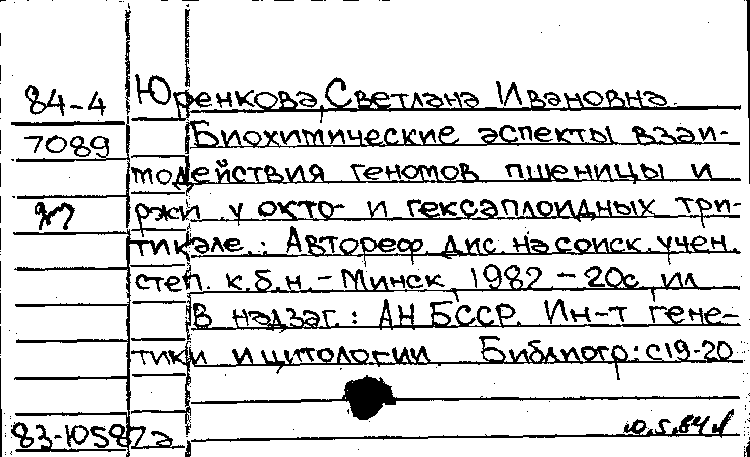 84-4 Юренкова, Светлана Ивановна
7089 Биохимические аспекты взаи-
модействия геномов пшеницы и
ржи у окто- и гексаплоидных три-
тикале.: Автореф. дис. на соиск. учен.
степ. к.б.н. - Минск, 1982 - 20с, ил
В надзаг.: АН БССР. Ин-т гене-
тики и цитологии Библиогр: с19-20
83-10587а